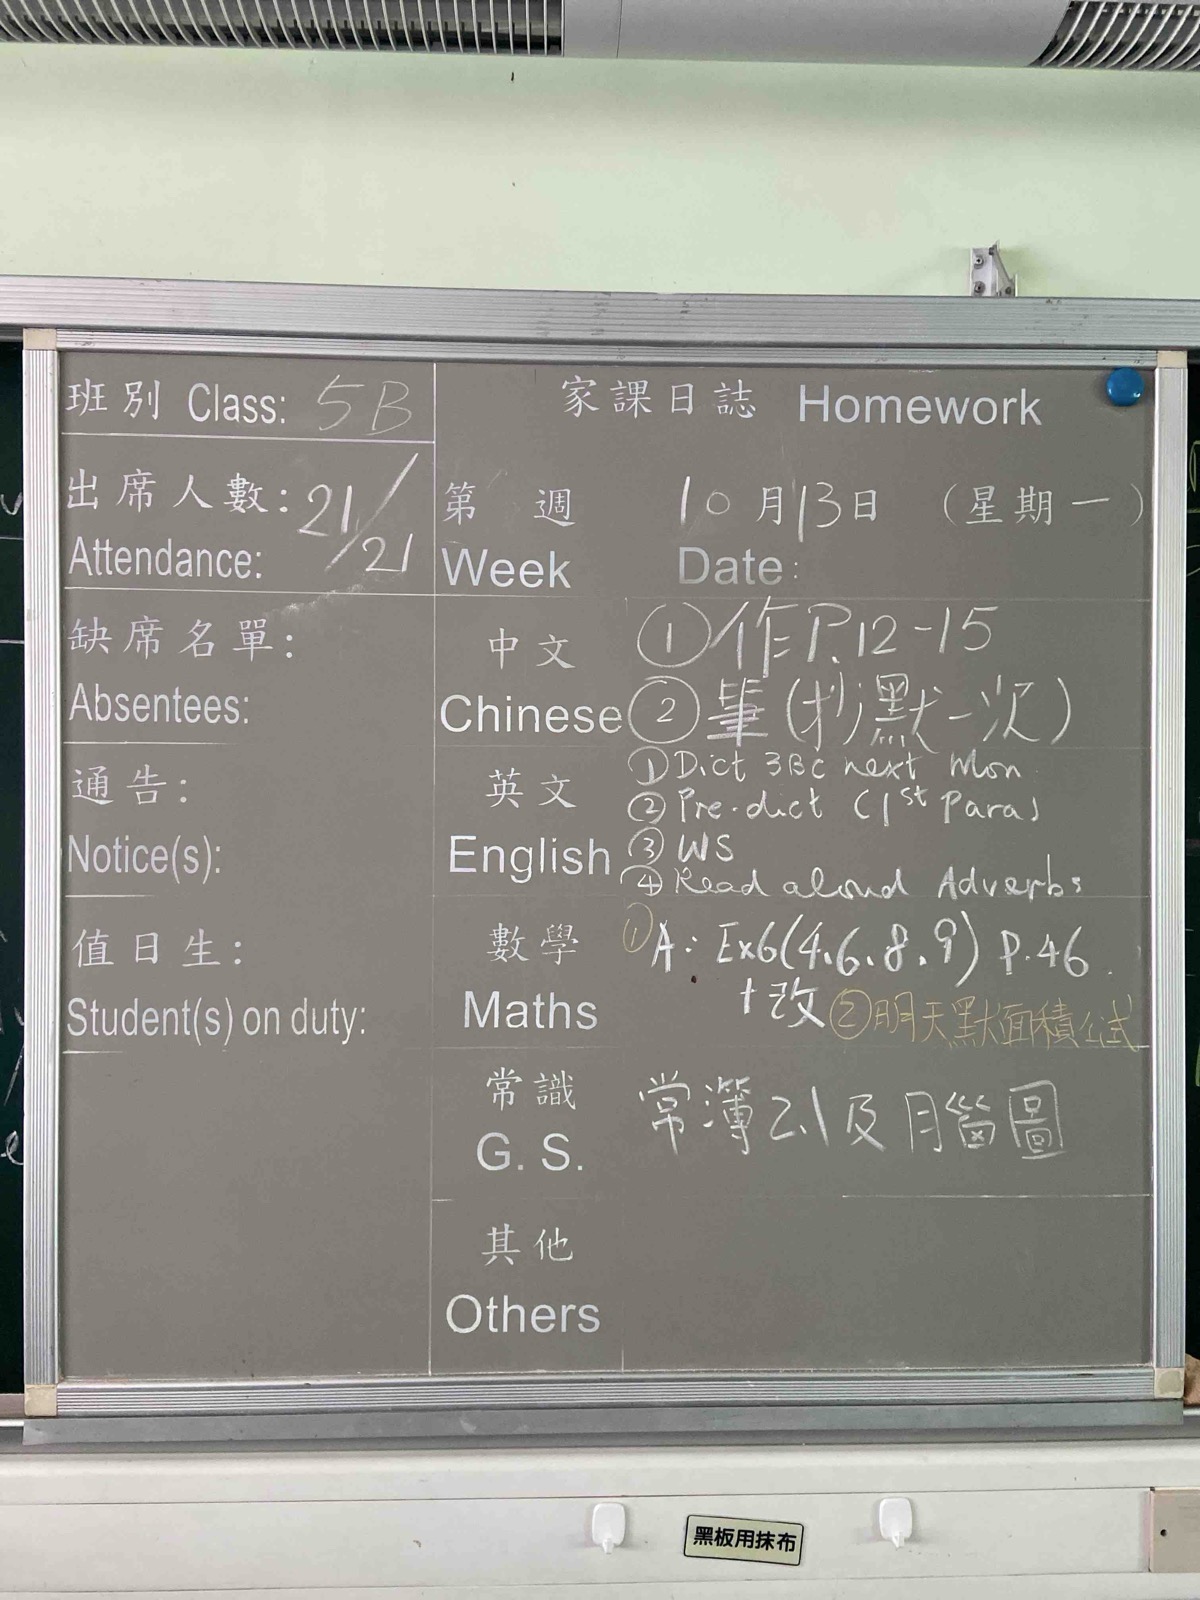 班別 Class: 5B
出席人數: 21/21
Attendance:
缺席名單:
Absentees:
通告:
Notice(s):
值日生:
Student(s) on duty:
家課日誌 Homework
第 週 10月13日 (星期一)
Week Date:
中文
Chinese
①作P.12-15
②筆(抄默一次)
英文
English
①Dict 3BC next Mon
②Pre-dict (1st Para)
③WS
④Read aloud Adverbs
數學
Maths
①A: Ex6(4.6.8.9) P.46
+改 ②明天默面積公式
常識
G. S.
常簿2.1及月腦圖
其他
Others
黑板用抹布